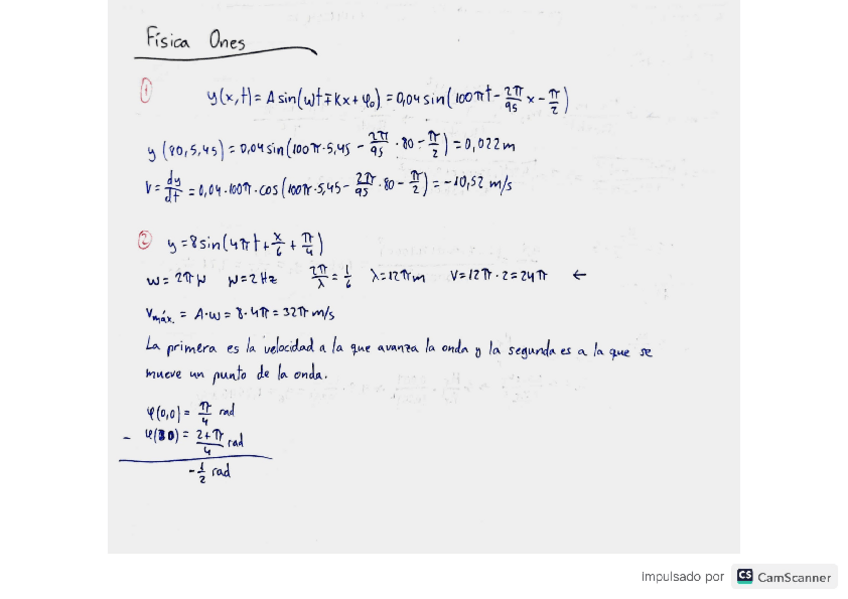 Física Ones
① y(x,t)= A sin(wt∓kx+φ₀) = 0,04 sin(100πt - 2π/95 x - π/2)
y (80,5,45) = 0,04 sin(100π·5,45 - 2π/95 · 80 - π/2) = 0,022 m
V = dy/dt = 0,04·100π·cos(100π·5,45 - 2π/95 · 80 - π/2) = -10,52 m/s
② y = 8 sin(4πt + x/6 + π/4)
w = 2πN N=2Hz 2π/λ = 1/6 λ=12πm V=12π·2=24π ←
Vmáx. = A·w = 8·4π = 32π m/s
La primera es la velocidad a la que avanza la onda y la segunda es a la que se
mueve un punto de la onda.
φ(0,0) = π/4 rad
- φ(30) = 2+π/4 rad
-1/2 rad
Impulsado por CS CamScanner